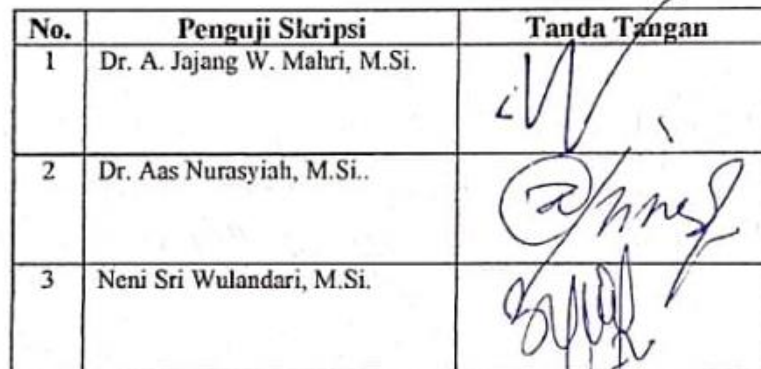 No. Penguji Skripsi Tanda Tangan
1 Dr. A. Jajang W. Mahri, M.Si.
2 Dr. Aas Nurasyiah, M.Si..
3 Neni Sri Wulandari, M.Si.